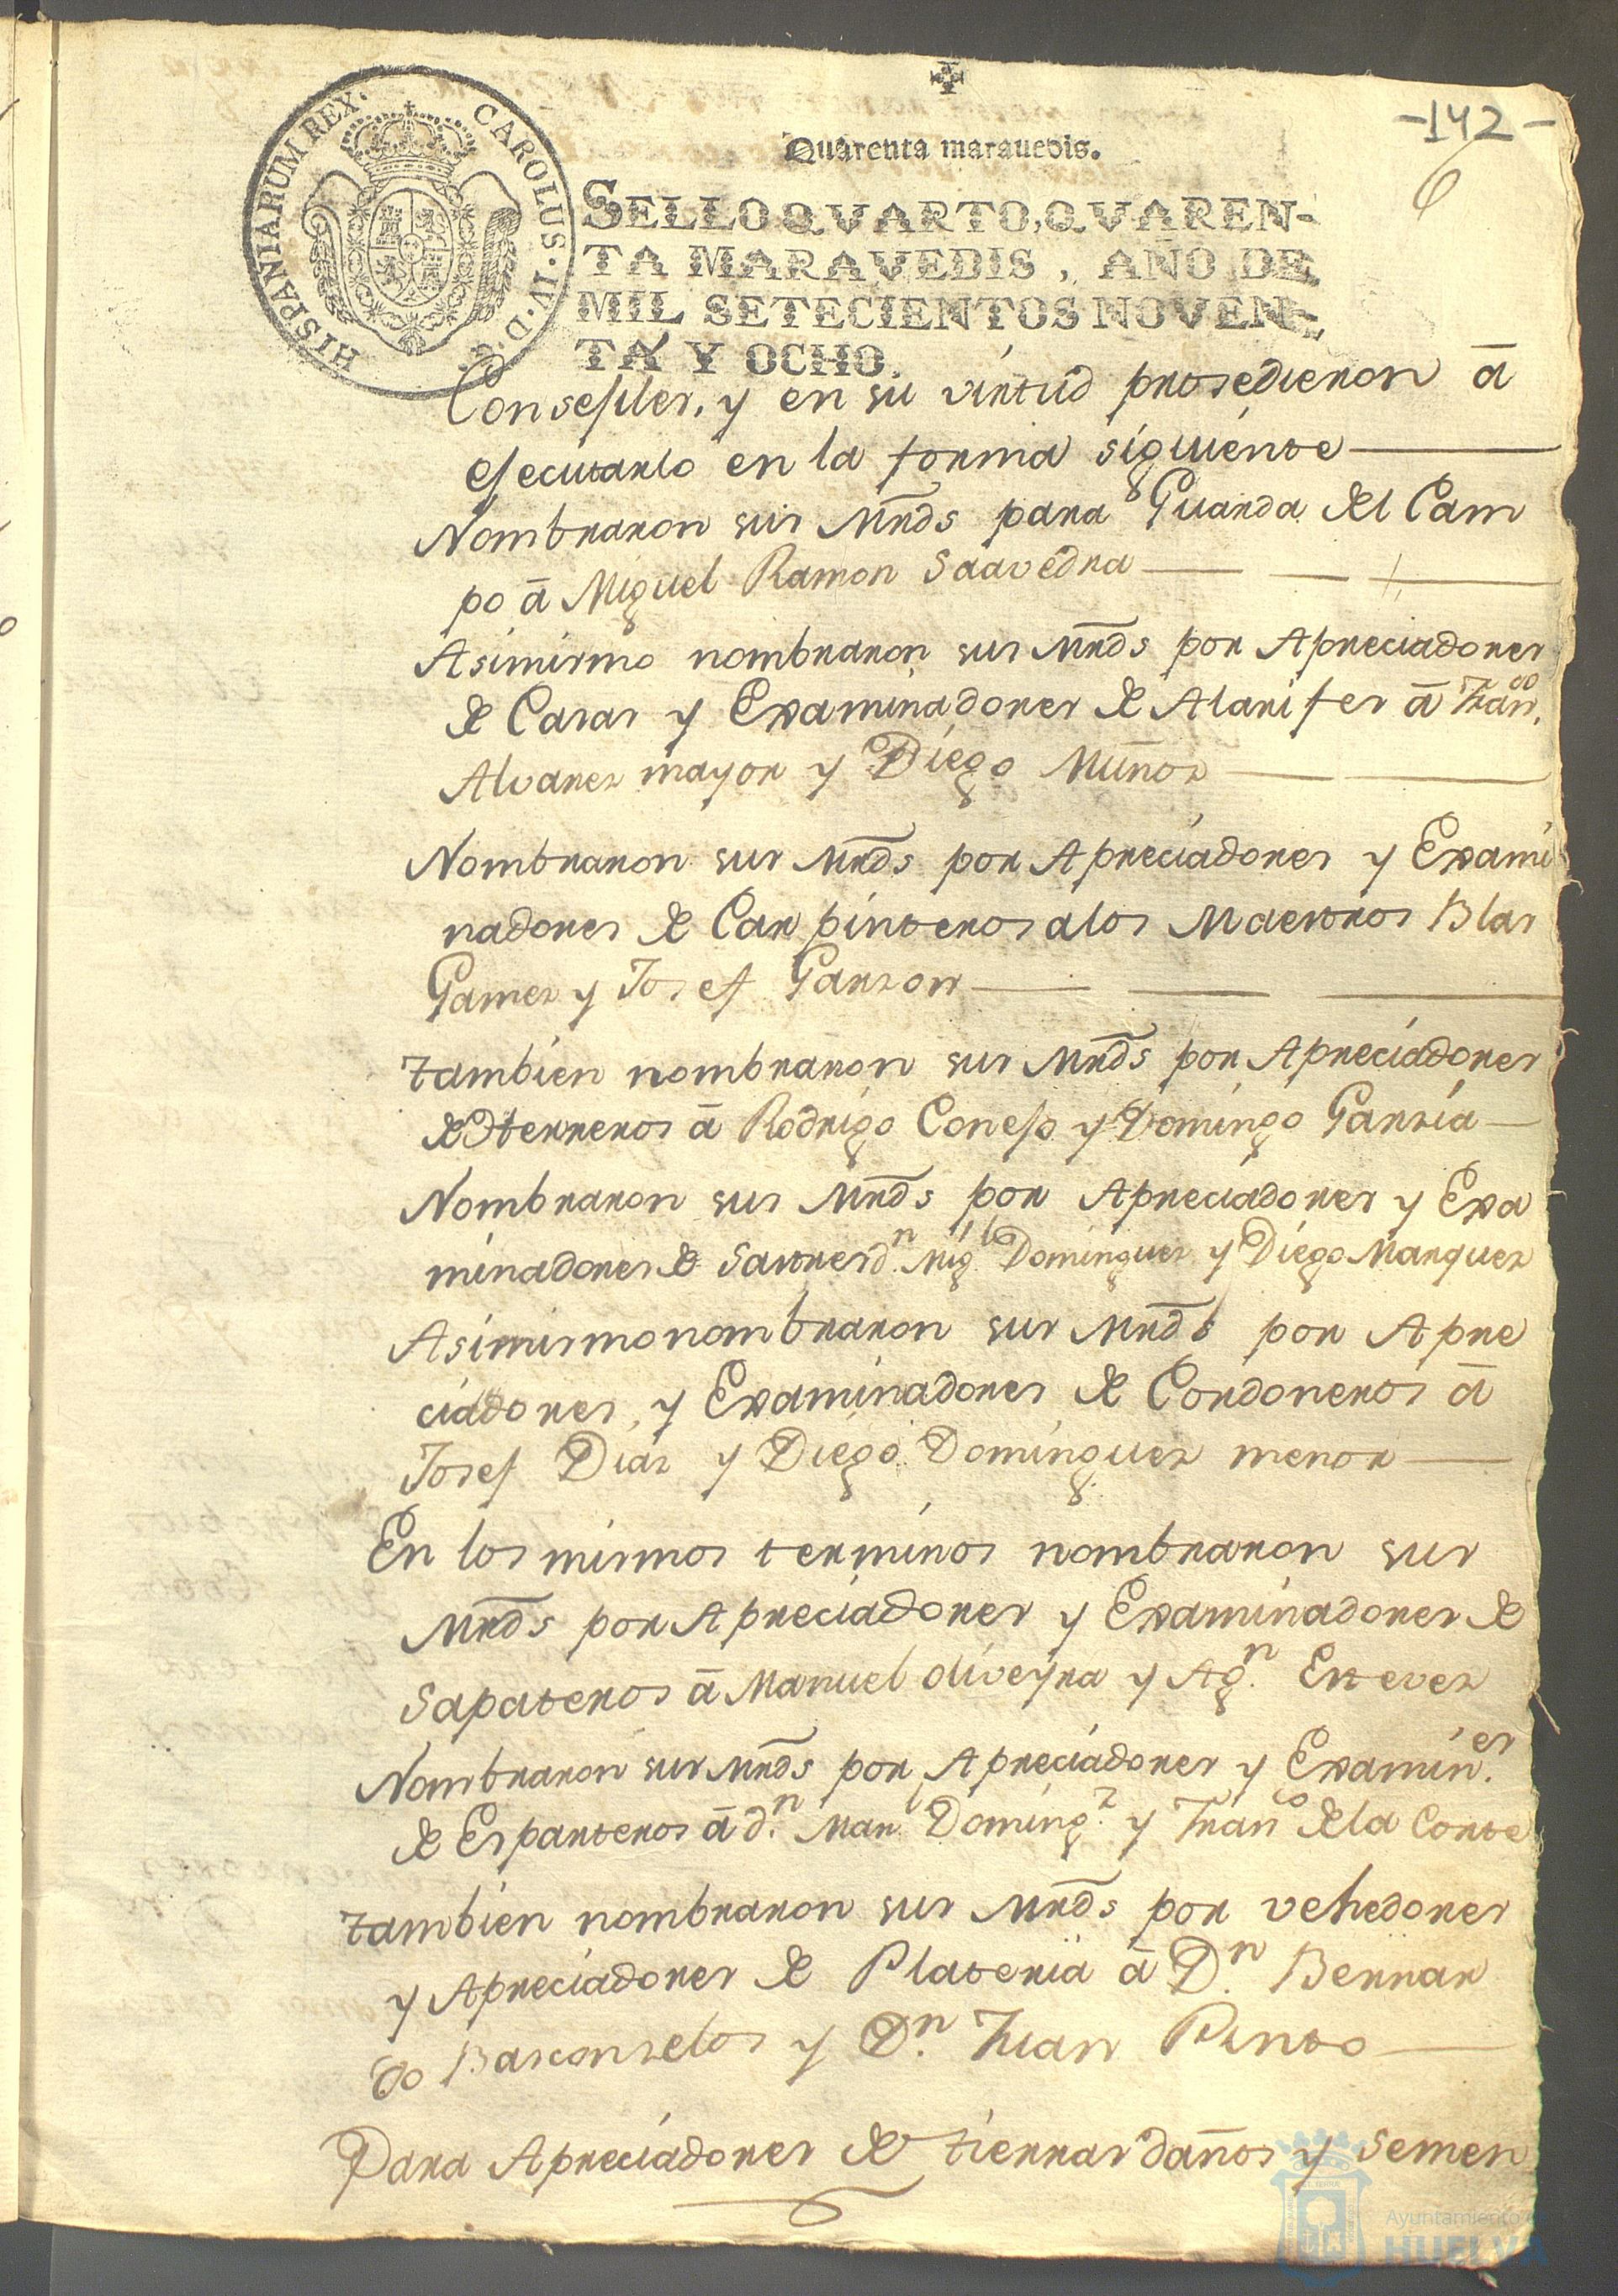 -142-
6
Quarenta maravedis.
HISPANIARUM REX. CAROLUS. IV. D. G.
SELLO QVARTO, QVAREN-
TA MARAVEDIS, AÑO DE
MIL SETECIENTOS NOVEN-
TA Y OCHO.
Consejales, y en su virtud prosedieron ā
ejecutarlo en la forma siguiente
Nombraron sus Mrds para Guarda del Cam
po ā Miguel Ramon Saavedra
Asimismo nombraron sus Mrds por Apreciadores
de Casas y Examinadores de Alarifes ā Franco.
Alvarez mayor y Diego Muñoz
Nombraron sus Mrds por Apreciadores y Exami
nadores de Carpinteros a los Maestros Blas
Gamez y Josef Garzon
tambien nombraron sus Mrds por Apreciadores
de Herreros ā Rodrigo Conejo y Domingo Garzia
Nombraron sus Mrds por Apreciadores y Exa
minadores de Sastres dn. Migl. Dominguez y Diego Marquez
Asimismo nombraron sus Mrds por Apre
ciadores, y Examinadores de Cordoneros ā
Josef Diaz y Diego Dominguez menor
En los mismos terminos nombraron sus
Mrds por Apreciadores y Examinadores de
Sapateros ā Manuel Oliveyra y Agn. Estevez
Nombraron sus Mrds por Apreciadores y Examines.
de Esparteros ā dn. Manl. Domingz. y Franco de la Corte
tambien nombraron sus Mrds por vehedores
y Apreciadores de Plateria ā Dn. Bernar
do Basconzelos y Dn. Juan Pinto
Para Apreciadores de tierras daños y Semen
Ayuntamiento de
HUELVA